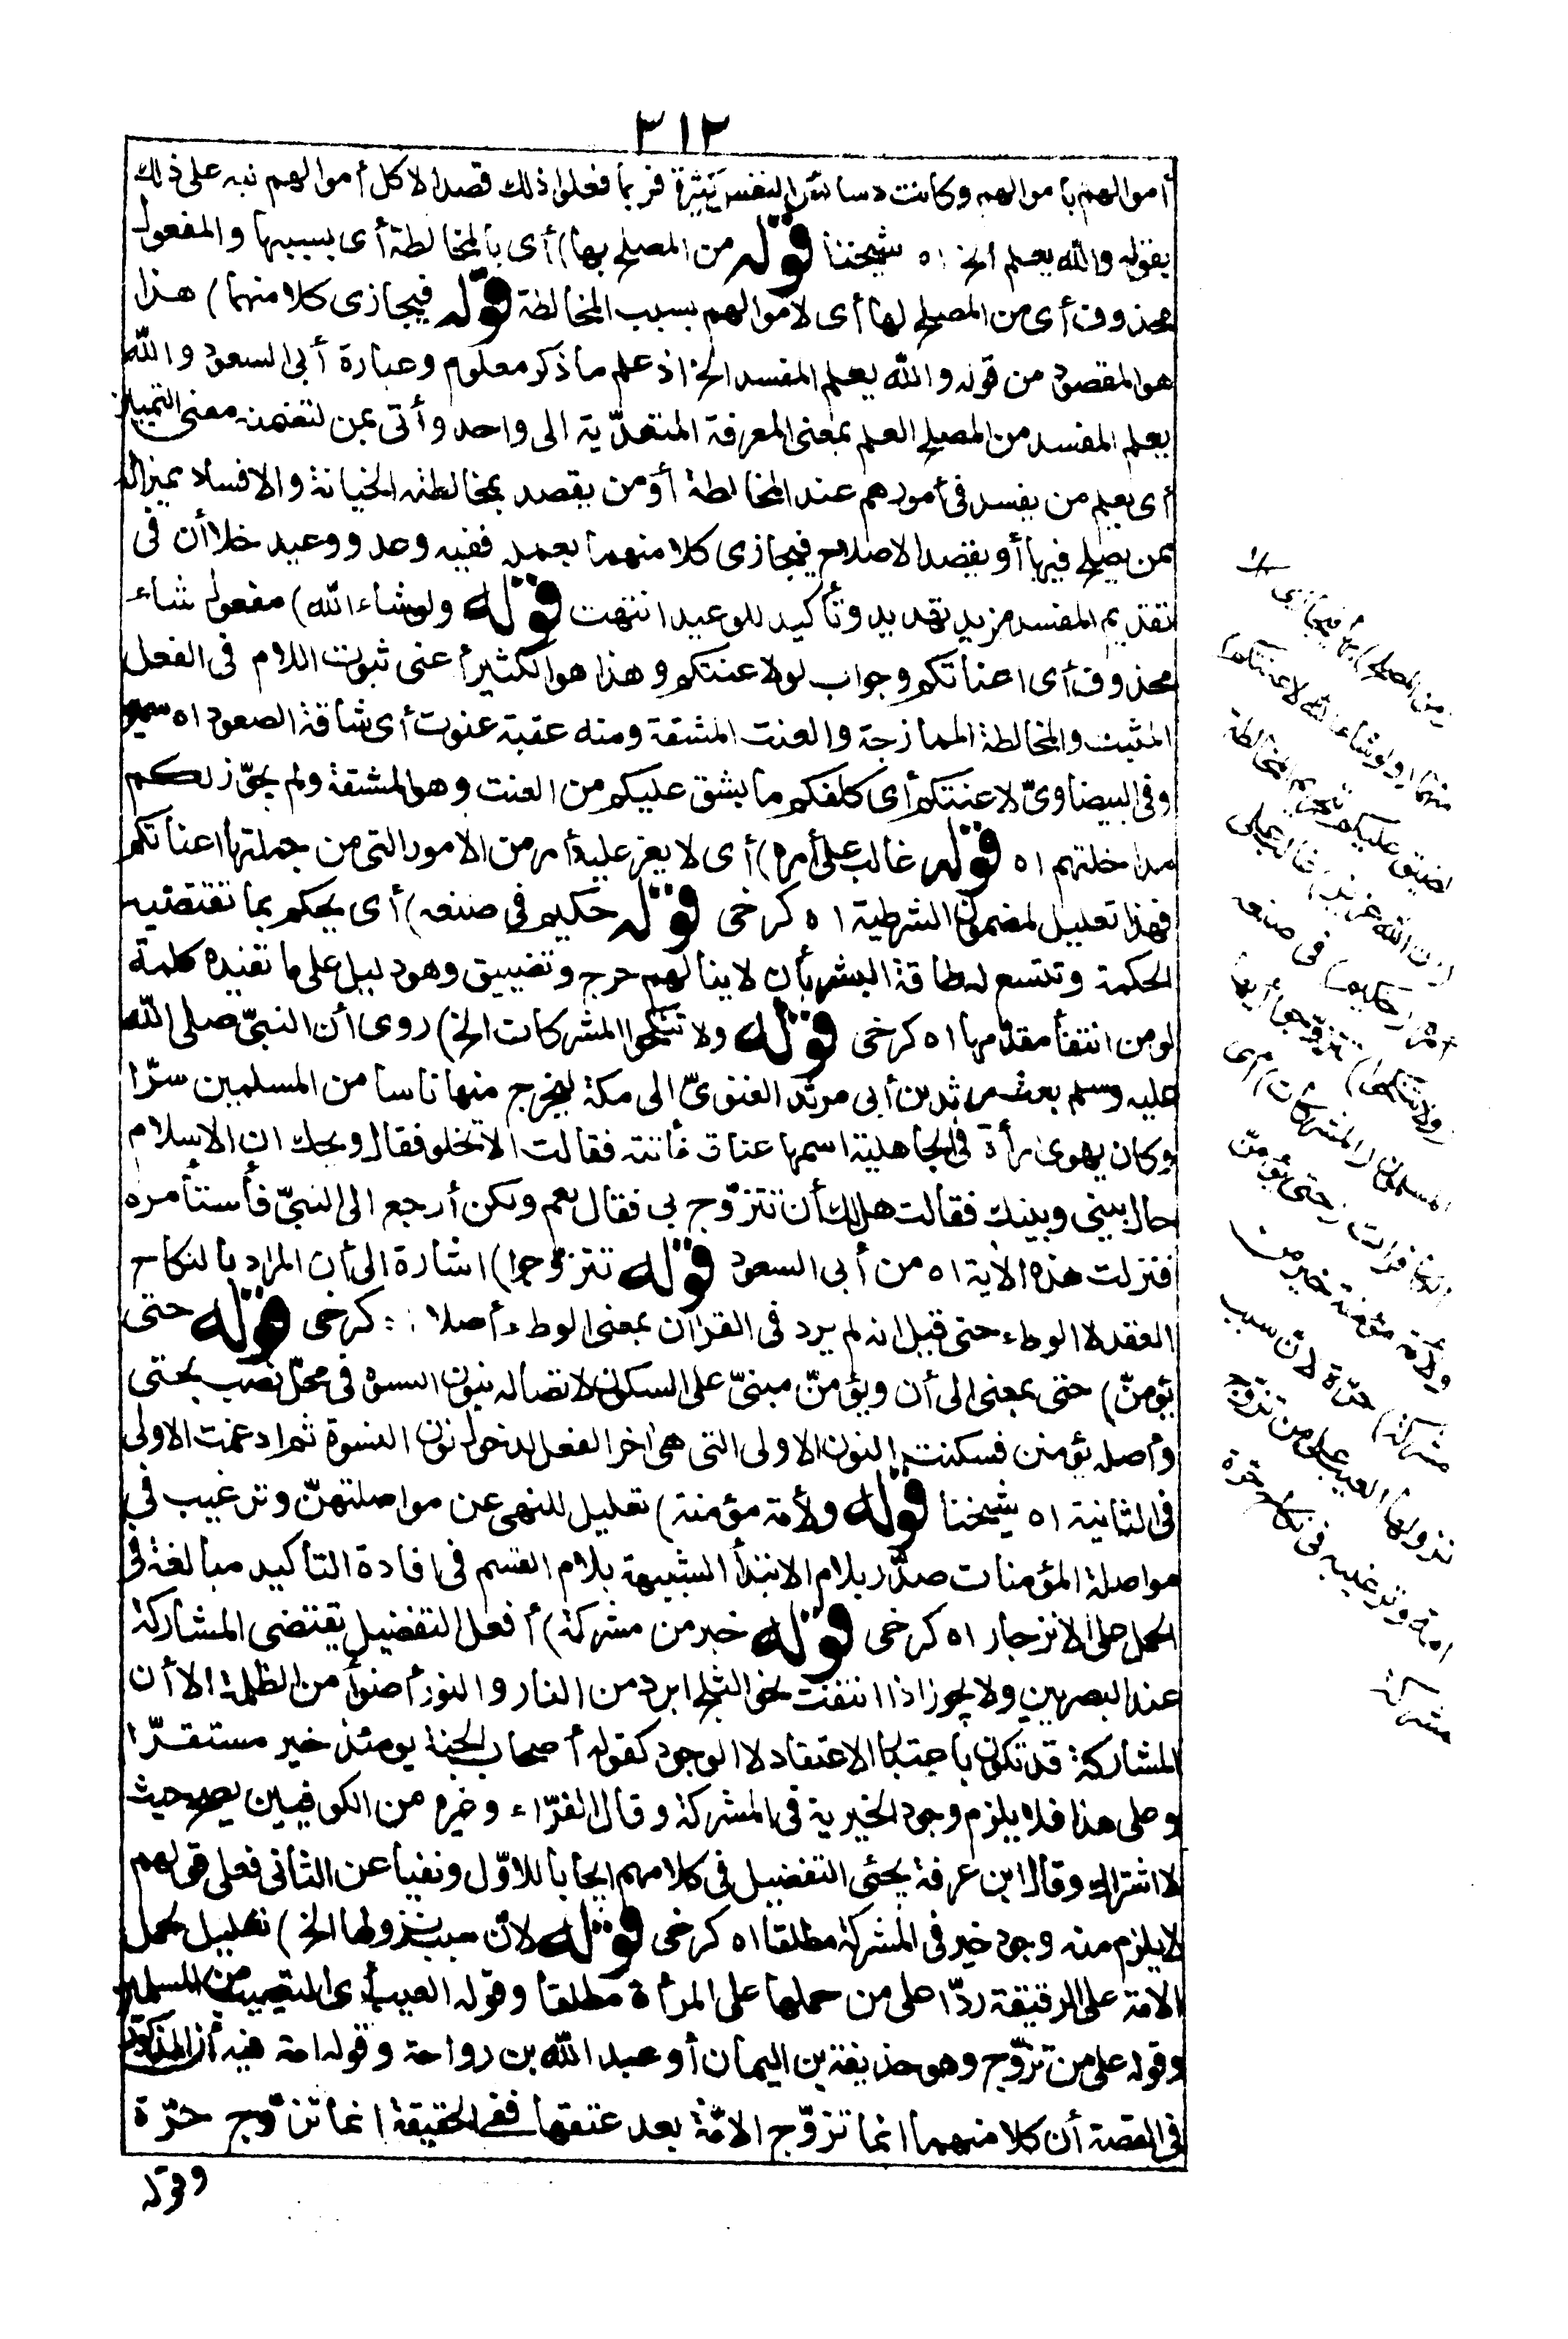 ٣١٢
أموالهم بأموالهم وكانت دسائس النفس كثيرة فربما فعلوا ذلك قصدا لاكل أموالهم نبه على ذلك
بقوله والله يعلم الخ اه شيخنا قوله من المصلح بها) أى بالمخالطة أى بسببها والمفعول
محذوف أى من المصلح لها أى لاموالهم بسبب المخالطة قوله فيجازى كلا منهما) هذا
هو المقصود من قوله والله يعلم المفسد الخ اذ علم ما ذكر معلوم وعبارة أبى السعود والله
يعلم المفسد من المصلح العلم بمعنى المعرفة المتعدّية الى واحد وأتى بمن لتضمنه معنى التمييز
أى يعلم من يفسد فى أمورهم عند المخالطة أو من يقصد بمخالطته الخيانة والافساد مميزا له
ممن يصلح فيها أو يقصد الاصلاح فيجازى كلا منهما بعمله ففيه وعد ووعيد خلا أن فى
تقديم المفسد مزيد تهديد وتأكيد للوعيد انتهت قوله ولو شاء الله) مفعول شاء
محذوف أى اعناتكم وجواب لو لاعنتكم وهذا هو الكثير أعنى ثبوت اللام فى الفعل
المثبت والمخالطة الممازجة والعنت المشقة ومنه عقبة عنوت أى شاقة الصعود اه سمين
وفى البيضاوىّ لاعنتكم أى كلفكم ما يشق عليكم من العنت وهو المشقة ولم يجوّز لكم
مداخلتهم اه قوله غالب على أمره) أى لا يعز عليه أمر من الامور التى من جملتها اعناتكم
فهذا تعليل لمضمون الشرطية اه كرخى قوله حكيم فى صنعه) أى يحكم بما تقتضيه
الحكمة وتتسع له طاقة البشر بأن لا ينالهم حرج وتضييق وهو دليل على ما تفيده كلمة
لو من انتفاء مقدمها اه كرخى قوله ولا تنكحوا المشركات الخ) روى أن النبىّ صلى الله
عليه وسلم بعث مرثد بن أبى مرثد الغنوىّ الى مكة ليخرج منها ناسا من المسلمين سرّا
وكان يهوى امرأة فى الجاهلية اسمها عناق فأتته فقالت ألا تخلو فقال ويحك ان الاسلام
حال بينى وبينك فقالت هل لك أن تتزوّج بى فقال نعم ولكن أرجع الى النبىّ فأستأمره
فنزلت هذه الآية اه من أبى السعود قوله تتزوّجوا) اشارة الى أن المراد بالنكاح
العقد لا الوطء حتى قيل انه لم يرد فى القرآن بمعنى الوطء أصلا اه كرخى قوله حتى
يؤمنّ) حتى بمعنى الى أن ويؤمنّ مبنىّ على السكون لاتصاله بنون النسوة فى محل نصب بحتى
وأصله يؤمنن فسكنت النون الاولى التى هى آخر الفعل لدخول نون النسوة ثم ادغمت الاولى
فى الثانية اه شيخنا قوله ولأمة مؤمنة) تعليل للنهى عن مواصلتهنّ وترغيب فى
مواصلة المؤمنات صدّر بلام الابتداء الشبيهة بلام القسم فى افادة التأكيد مبالغة فى
الحمل على الانزجار اه كرخى قوله خير من مشركة) أفعل التفضيل يقتضى المشاركة
عند البصريين ولا يجوز اذا انتفت نحو الثلج ابرد من النار والنور أضوأ من الظلمة الا أن
المشاركة قد تكون باعتبار الاعتقاد لا الوجود كقوله أصحاب الجنة يومئذ خير مستقرّا
وعلى هذا فلا يلزم وجود الخيرية فى المشركة وقال الفرّاء وغيره من الكوفيين يصح حيث
لا اشتراك وقال ابن عرفة يجئ التفضيل فى كلامهم ايجابا للاوّل ونفيا عن الثانى فعلى قولهم
لا يلزم منه وجود خير فى المشركة مطلقا اه كرخى قوله لأنّ سبب نزولها الخ) تعليل لحمل
الامة على الرقيقة ردّا على من حملها على المرأة مطلقا وقوله العيب أى التعييب من المسلمين
وقوله على من تزوّج وهو حذيفة بن اليمان أو عبد الله بن رواحة وقوله امة فيه أن المذكور
فى القصة أن كلا منهما انما تزوّج الامة بعد عتقها ففى الحقيقة انما تزوّج حرّة
وقوله
(من المصلح) بها فيجازى كلا
منهما (ولو شاء الله لاعنتكم)
لضيق عليكم بتحريم المخالطة
(ان الله عزيز) غالب على
أمره (حكيم) فى صنعه
(ولا تنكحوا) تتزوّجوا أيها
المسلمون (المشركات) أى
الكافرات (حتى يؤمنّ
ولأمة مؤمنة خير من
مشركة) حرّة لأن سبب
نزولها العيب على من تزوّج
امة وترغيبه فى نكاح حرة
مشركة